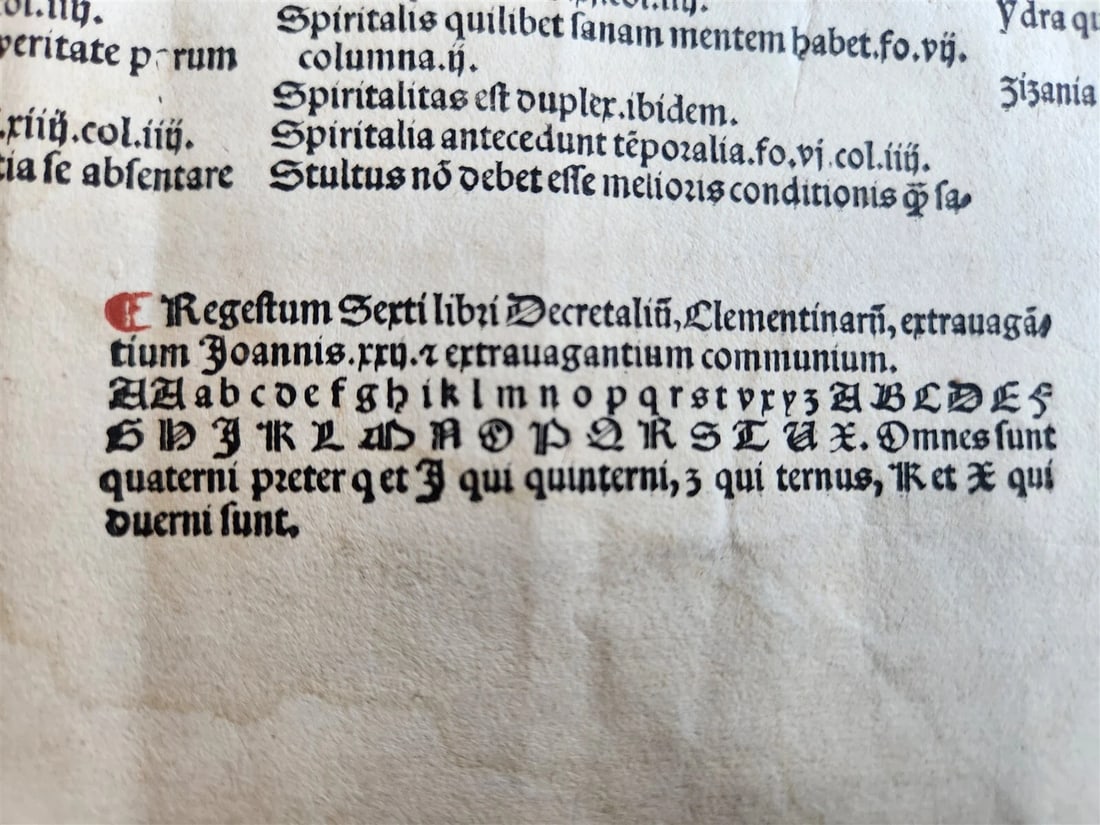 ol.iiij.
veritate parum
.xiiij.col.iiij.
tia se absentare
Spiritalis quilibet ſanam mentem habet.fo.vij.
columna.ij.
Spiritalitas eſt duplex.ibidem.
Spiritalia antecedunt tēporalia.fo.vj.col.iiij.
Stultus nō debet eſſe melioris conditionis ꝙ̄ ſa⸗
ydra qu
zizania
¶ Regeſtum Sexti libri Decretaliū, Clementinarū, extrauagā⸗
tium Joannis.xxij.⁊ extrauagantium communium.
AA a b c d e f g h i k l m n o p q r s t v x y z A B C D E F
G H J K L M N O P Q R S T U X. Omnes ſunt
quaterni preter q et J qui quinterni, z qui ternus, K et X qui
duerni ſunt.